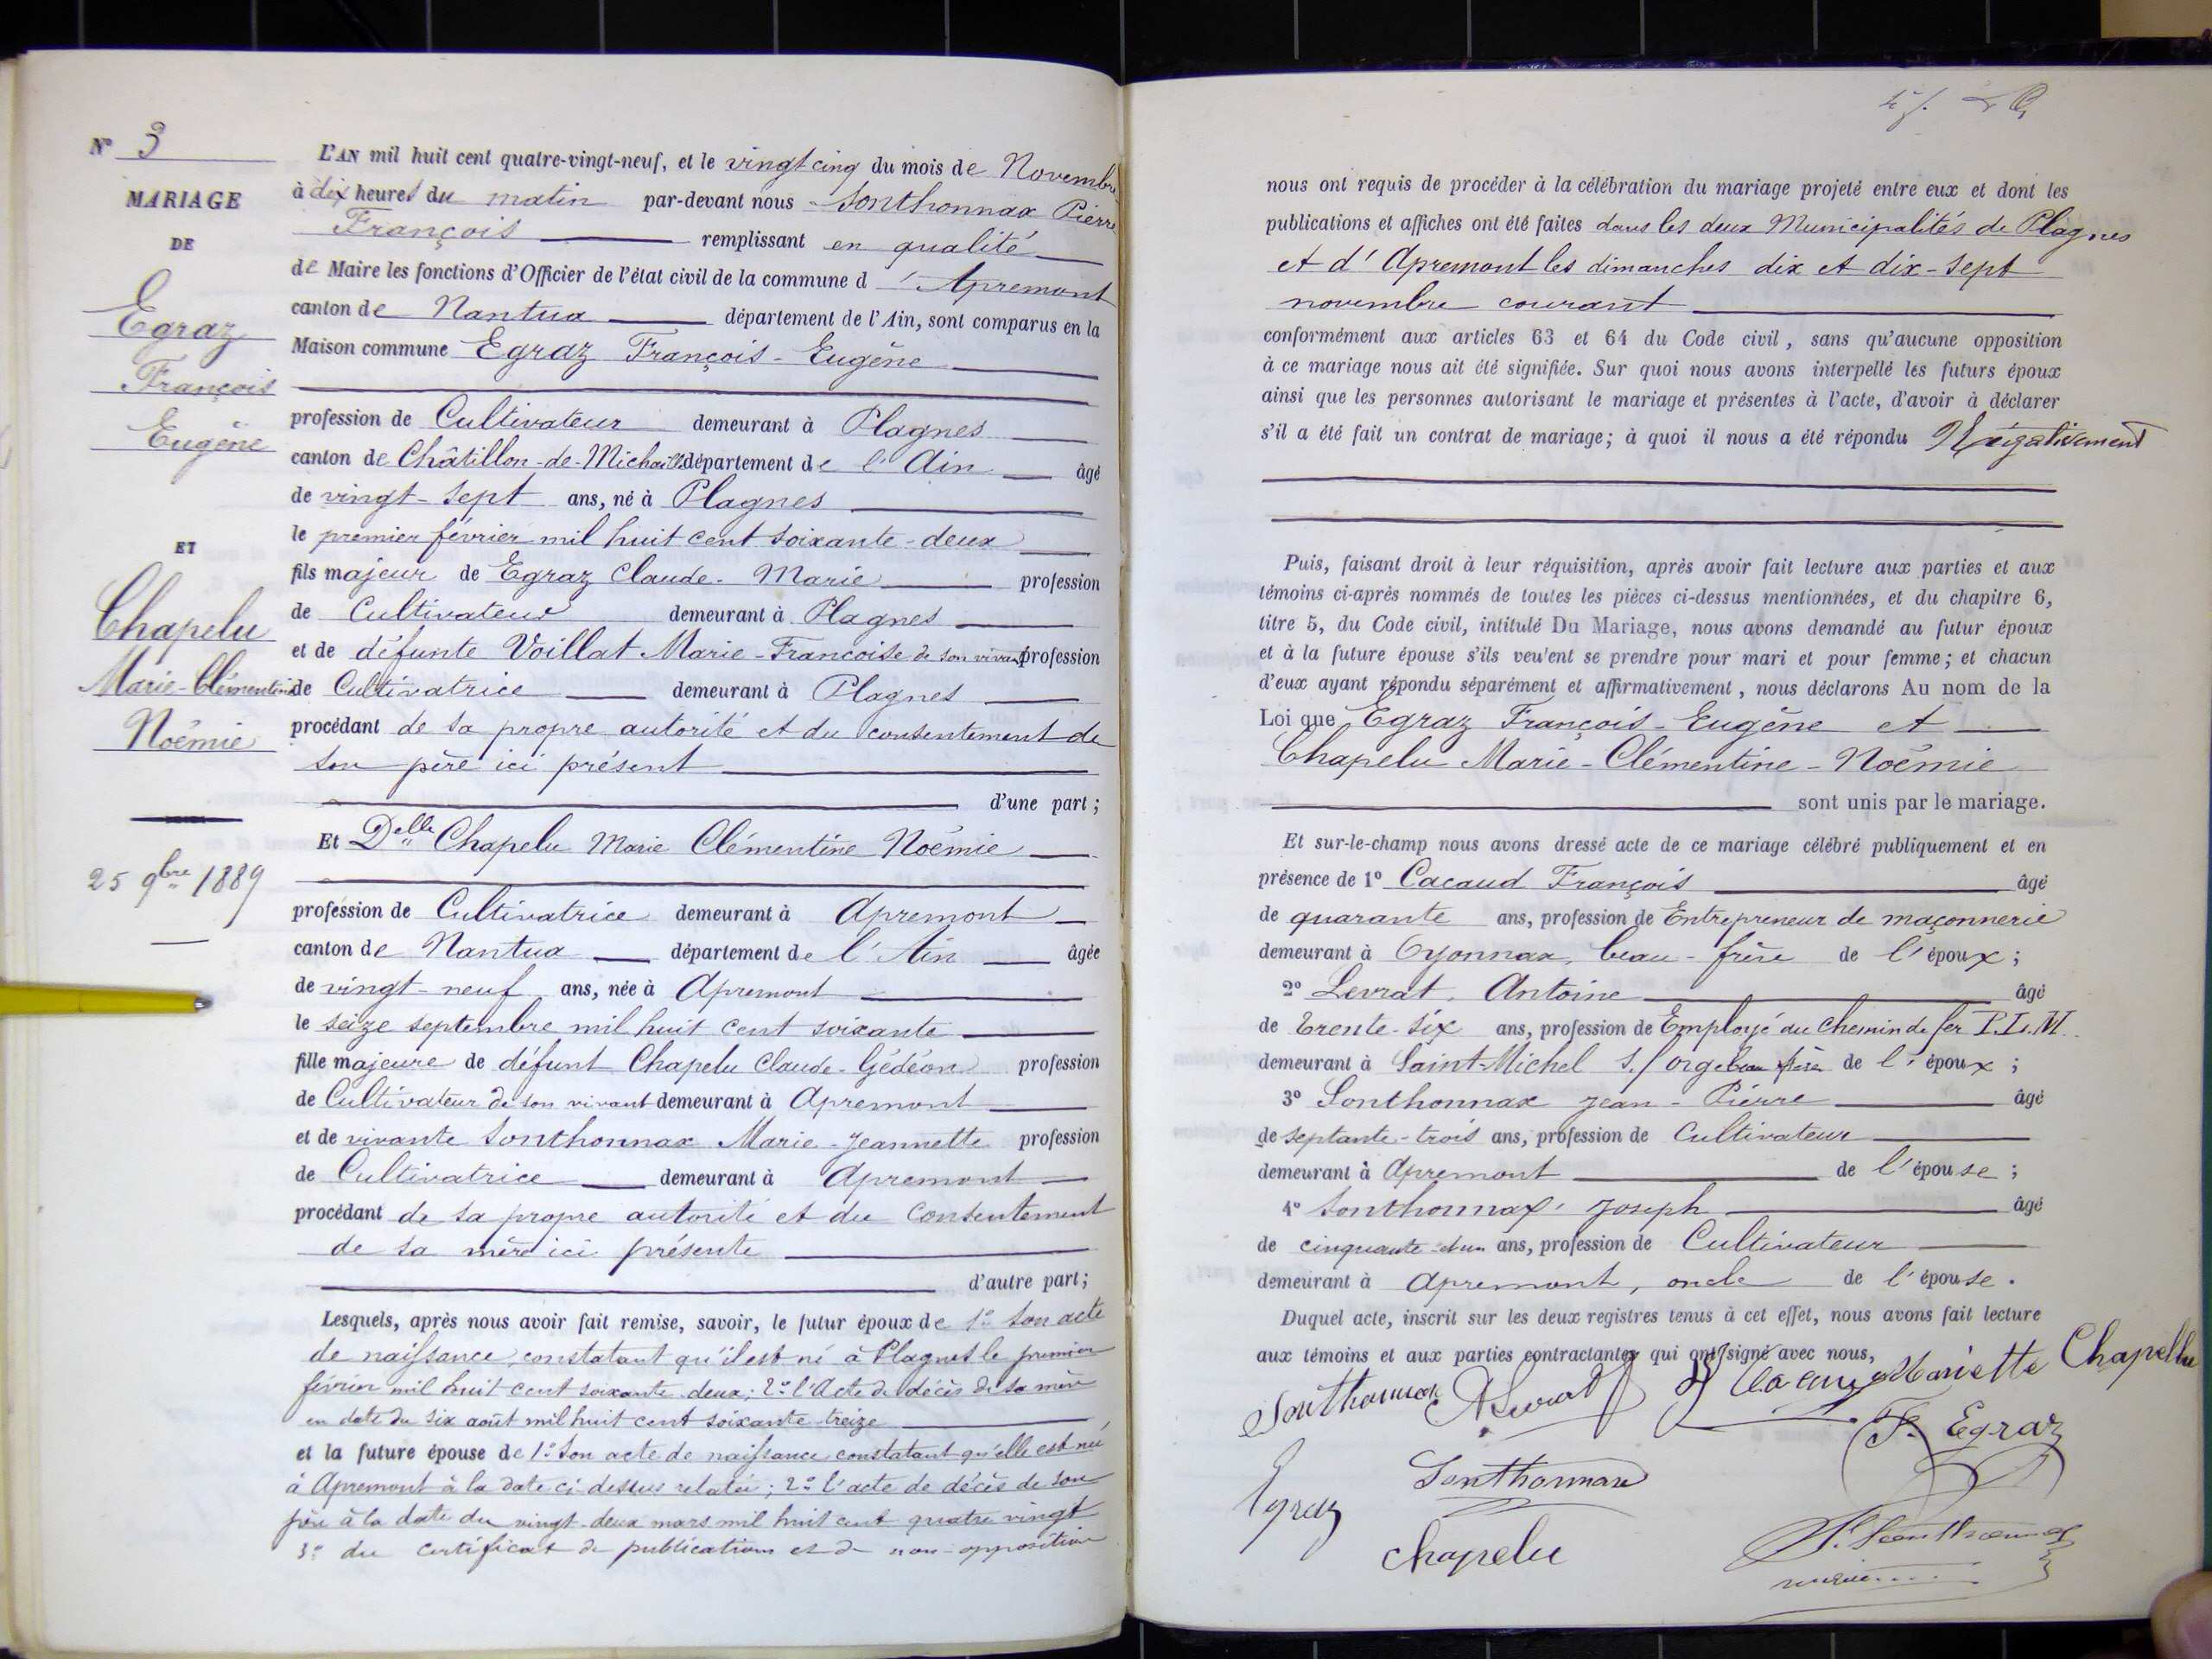 N° 3
MARIAGE
DE
Egraz
François
Eugène
ET
Chapelu
Marie-Clémentine
Noémie
25 9bre 1889
L'AN mil huit cent quatre-vingt-neuf, et le vingt cinq du mois de Novembre
à dix heures du matin par-devant nous Sonthonnax Pierre
François remplissant en qualité
de Maire les fonctions d'Officier de l'état civil de la commune d'Apremont
canton de Nantua département de l'Ain, sont comparus en la
Maison commune Egraz François-Eugène
profession de Cultivateur demeurant à Plagnes
canton de Châtillon-de-Michaille département de l'Ain âgé
de vingt-sept ans, né à Plagnes
le premier février mil huit cent soixante-deux
fils majeur de Egraz Claude-Marie profession
de Cultivateur demeurant à Plagnes
et de défunte Voillat Marie-Françoise de son vivant profession
de Cultivatrice demeurant à Plagnes
procédant de sa propre autorité et du consentement de
son père ici présent
d'une part;
Et Delle Chapelu Marie Clémentine Noémie
profession de Cultivatrice demeurant à Apremont
canton de Nantua département de l'Ain âgée
de vingt-neuf ans, née à Apremont
le seize septembre mil huit cent soixante
fille majeure de défunt Chapelu Claude-Gédéon profession
de Cultivateur de son vivant demeurant à Apremont
et de vivante Sonthonnax Marie-Jeannette profession
de Cultivatrice demeurant à Apremont
procédant de sa propre autorité et du consentement
de sa mère ici présente
d'autre part;
Lesquels, après nous avoir fait remise, savoir, le futur époux de 1° son acte
de naissance constatant qu'il est né à Plagnes le premier
février mil huit cent soixante-deux; 2° l'Acte de décès de sa mère
en date du six août mil huit cent soixante treize
et la future épouse de 1° son acte de naissance constatant qu'elle est née
à Apremont à la date ci-dessus relatée; 2° l'acte de décès de son
père à la date du vingt-deux mars mil huit cent quatre vingt
3° du certificat de publications et de non-opposition
nous ont requis de procéder à la célébration du mariage projeté entre eux et dont les
publications et affiches ont été faites dans les deux Municipalités de Plagnes
et d'Apremont les dimanches dix et dix-sept
novembre courant
conformément aux articles 63 et 64 du Code civil, sans qu'aucune opposition
à ce mariage nous ait été signifiée. Sur quoi nous avons interpellé les futurs époux
ainsi que les personnes autorisant le mariage et présentes à l'acte, d'avoir à déclarer
s'il a été fait un contrat de mariage; à quoi il nous a été répondu Négativement
Puis, faisant droit à leur réquisition, après avoir fait lecture aux parties et aux
témoins ci-après nommés de toutes les pièces ci-dessus mentionnées, et du chapitre 6,
titre 5, du Code civil, intitulé Du Mariage, nous avons demandé au futur époux
et à la future épouse s'ils veulent se prendre pour mari et pour femme; et chacun
d'eux ayant répondu séparément et affirmativement, nous déclarons Au nom de la
Loi que Egraz François-Eugène et
Chapelu Marie-Clémentine-Noémie
sont unis par le mariage.
Et sur-le-champ nous avons dressé acte de ce mariage célébré publiquement et en
présence de 1° Cacaud François âgé
de quarante ans, profession de Entrepreneur de maçonnerie
demeurant à Oyonnax, beau-frère de l'époux;
2° Levrat Antoine âgé
de trente-six ans, profession de Employé du chemin de fer P.L.M.
demeurant à Saint-Michel s/orge beau frère de l'époux;
3° Sonthonnax Jean-Pierre âgé
de septante-trois ans, profession de Cultivateur
demeurant à Apremont de l'épouse;
4° Sonthonnax Joseph âgé
de cinquante-et-un ans, profession de Cultivateur
demeurant à Apremont, oncle de l'épouse.
Duquel acte, inscrit sur les deux registres tenus à cet effet, nous avons fait lecture
aux témoins et aux parties contractantes qui ont signé avec nous,
Sonthonnax A Levrat Mariette Chapellu
F. Egraz
Egraz Sonthonnax
Chapelu